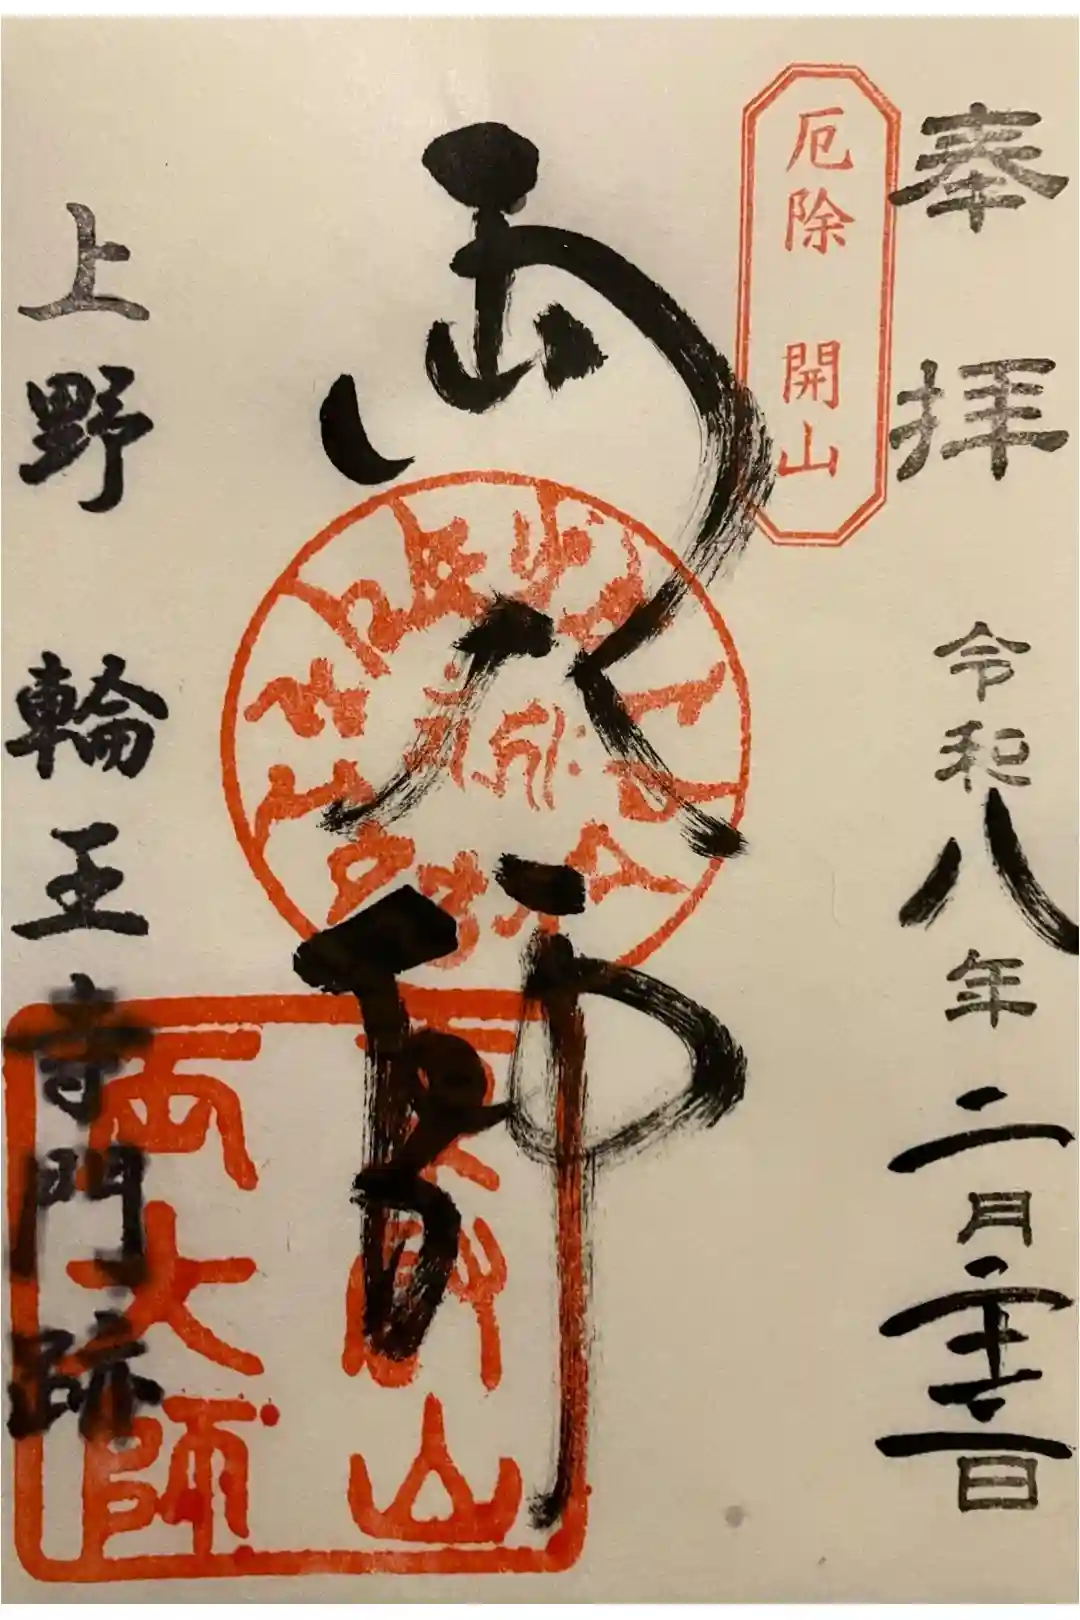 奉拝
令和八年二月二十三日
厄除 開山
両大師
東叡山
両大師
上野 輪王寺門跡